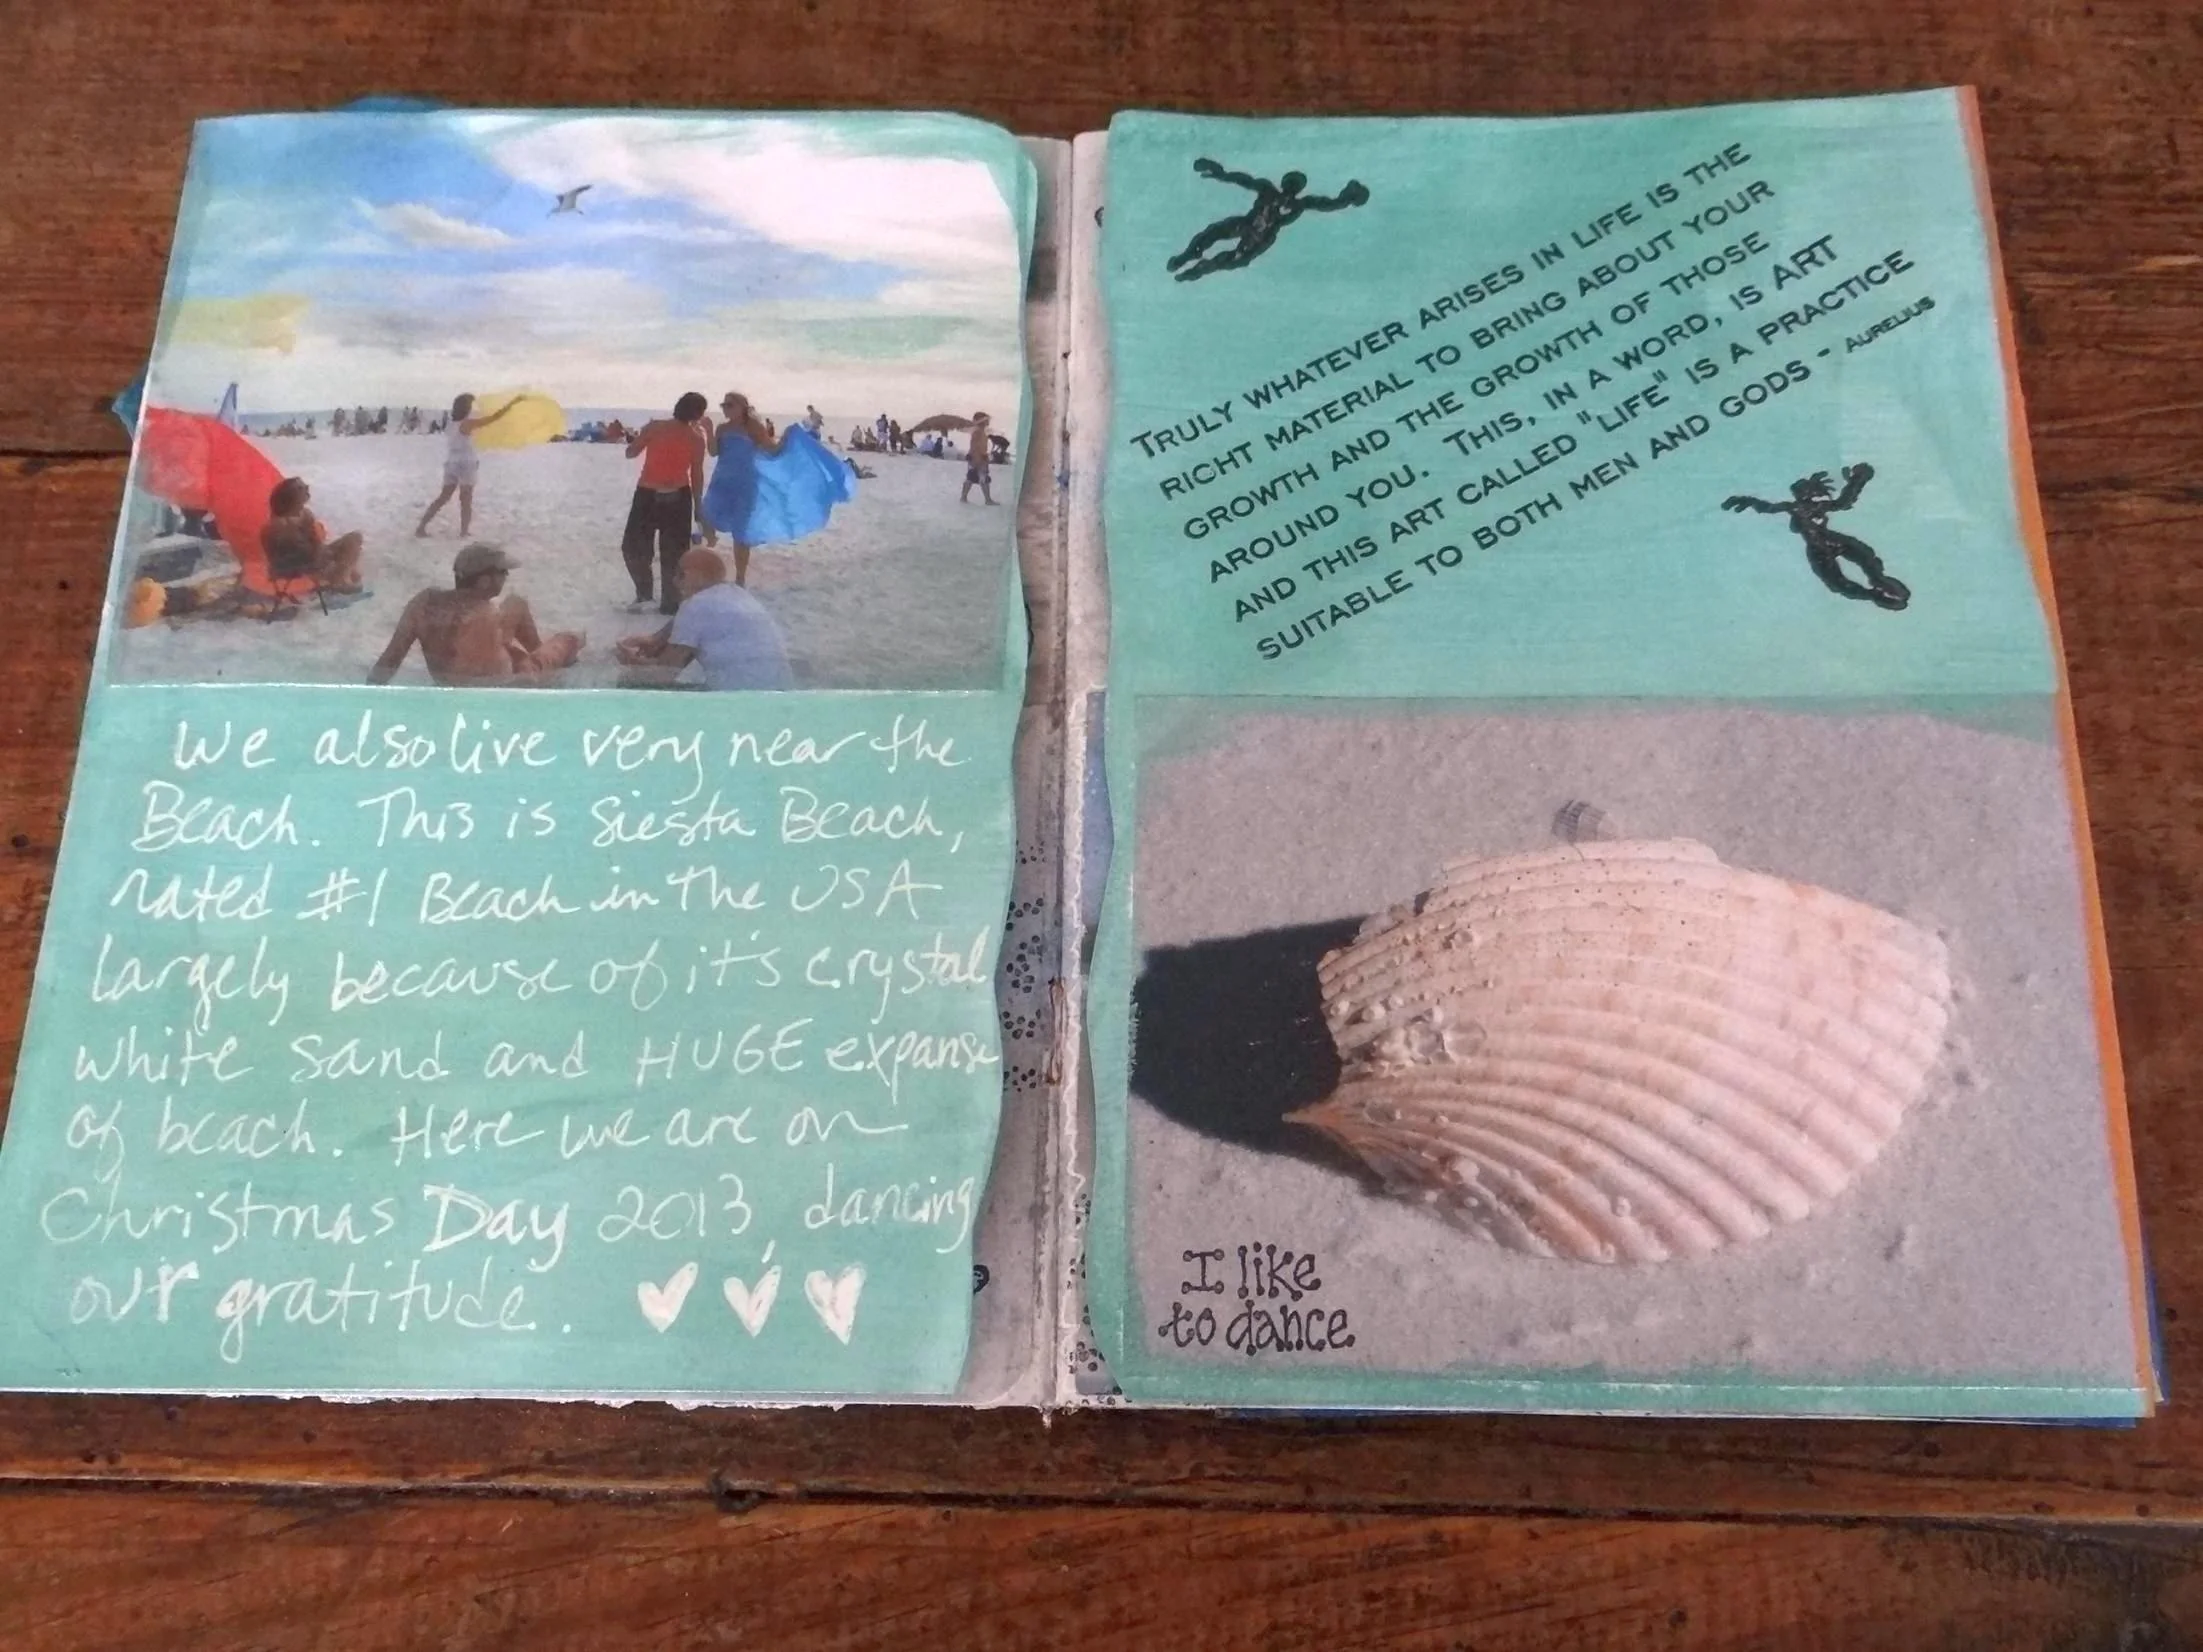 We also live very near the
Beach. This is Siesta Beach,
rated #1 Beach in the USA
largely because of it's crystal
white sand and HUGE expanse
of beach. Here we are on
Christmas Day 2013, dancing
our gratitude.
TRULY WHATEVER ARISES IN LIFE IS THE
RIGHT MATERIAL TO BRING ABOUT YOUR
GROWTH AND THE GROWTH OF THOSE
AROUND YOU. THIS, IN A WORD, IS ART
AND THIS ART CALLED "LIFE" IS A PRACTICE
SUITABLE TO BOTH MEN AND GODS - AURELIUS
I like
to dance